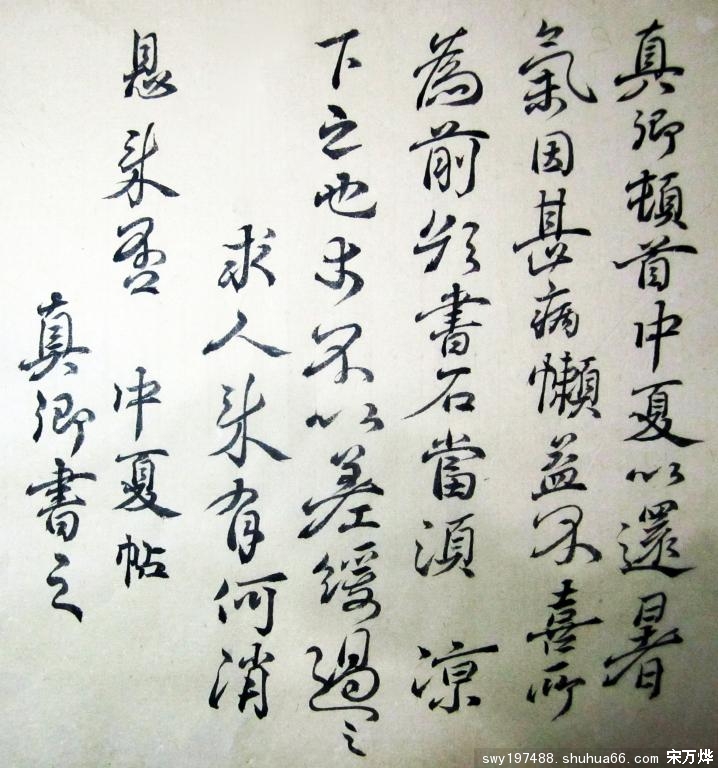 真卿頓首中夏以還暑
氣因甚病懶益不喜所
為前欲書石當須 凉
下之也古不以差緩過之
求人來有何消
息來否 中夏帖
真卿書之
swy197488.shuhua66.com 宋万烨